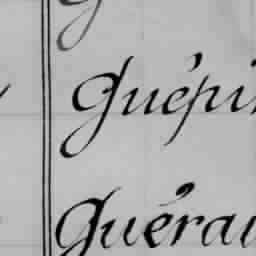 Guépi
Guérau